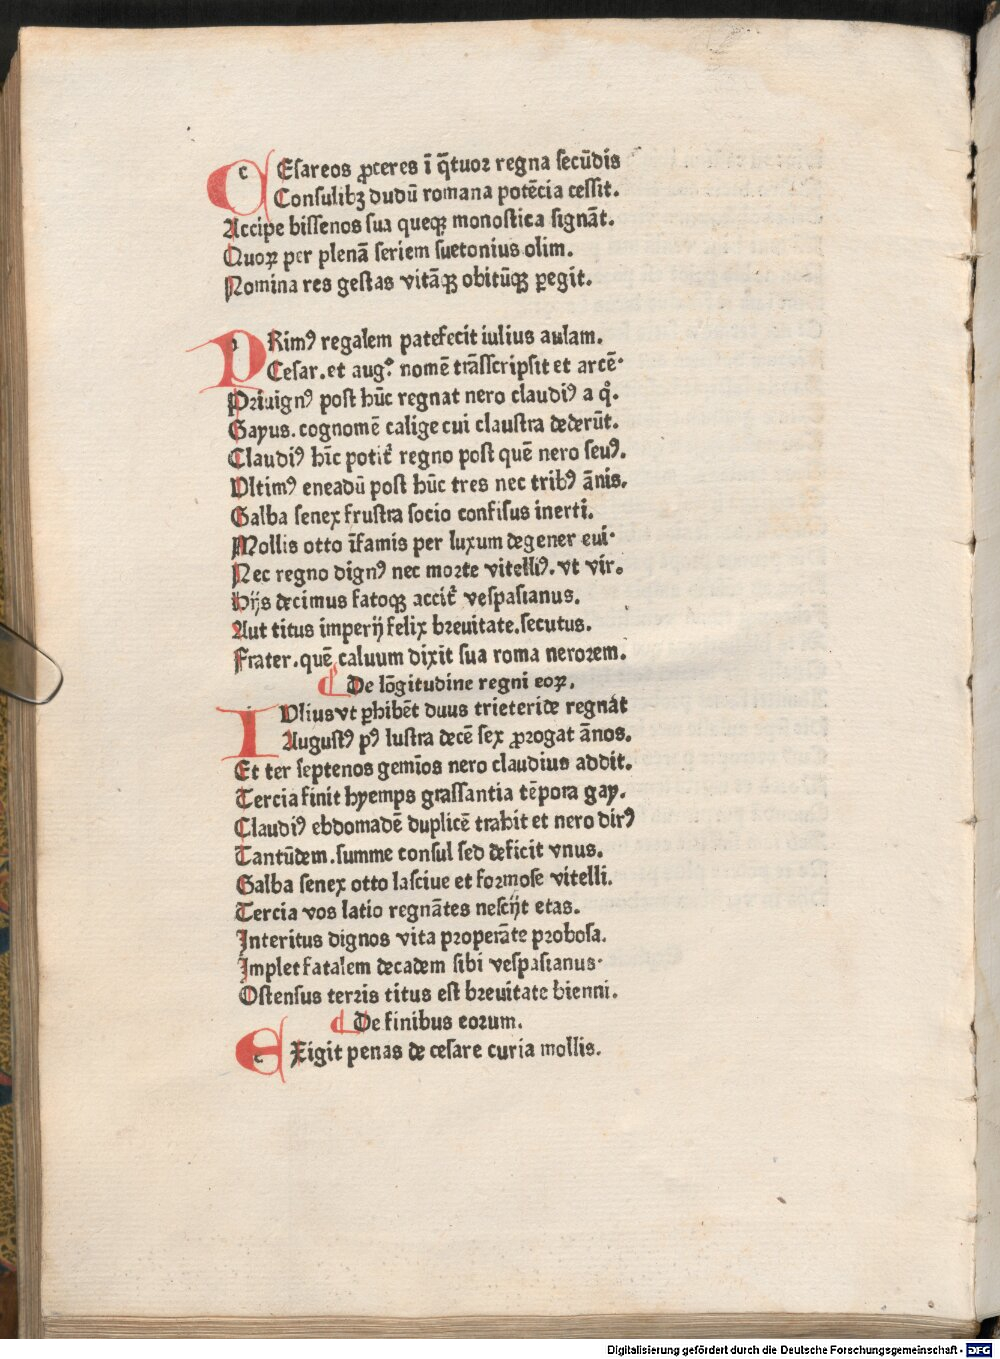 CEsareos ꝓceres ī q̄tuoꝛ regna secūdis
Consulibꝫ dudū romana potēcia cessit.
Accipe bissenos sua queqꝫ monostica signāt.
Quoꝝ per plenā seriem suetonius olim.
Nomina res gestas vitāqꝫ obitūqꝫ ꝑegit.
PRimꝰ regalem patefecit iulius aulam.
Cesar. et augꝰ nomē trāsscripsit et arcē.
Pꝛiuignꝰ post hūc regnat nero claudiꝰ a qͦ.
Gayus. cognomē calige cui claustra dederūt.
Claudiꝰ hīc potit᷑ regno post quē nero seuꝰ.
Vltimꝰ eneadū post hūc tres nec tribꝰ ānis.
Galba senex frustra socio confisus inerti.
Mollis otto īfamis per luxum degener eui.
Nec regno dignꝰ nec moꝛte vitelliꝰ. vt vir.
Hijs decimus fatoqꝫ accit᷑ vespasianus.
Aut titus imperij felix bꝛeuitate. secutus.
Frater. quē caluum dixit sua roma neroꝛem.
De lōgitudine regni eoꝝ.
IVlius vt ꝑhibēt duus trieteride regnāt
Augustꝰ pꝰ lustra decē sex ꝓrogat ānos.
Et ter septenos gemīos nero claudius addit.
Tercia finit hyemps grassantia tēpoꝛa gay.
Claudiꝰ ebdomadē duplicē trahit et nero dirꝰ
Tantūdem. summe consul sed deficit vnus.
Galba senex otto lasciue et foꝛmose vitelli.
Tercia vos latio regnātes nescijt etas.
Interitus dignos vita pꝛoperāte pꝛobosa.
Implet fatalem decadem sibi vespasianus.
Ostensus terꝛis titus est bꝛeuitate bienni.
De finibus eoꝛum.
EXigit penas de cesare curia mollis.
Digitalisierung gefördert durch die Deutsche Forschungsgemeinschaft - DFG